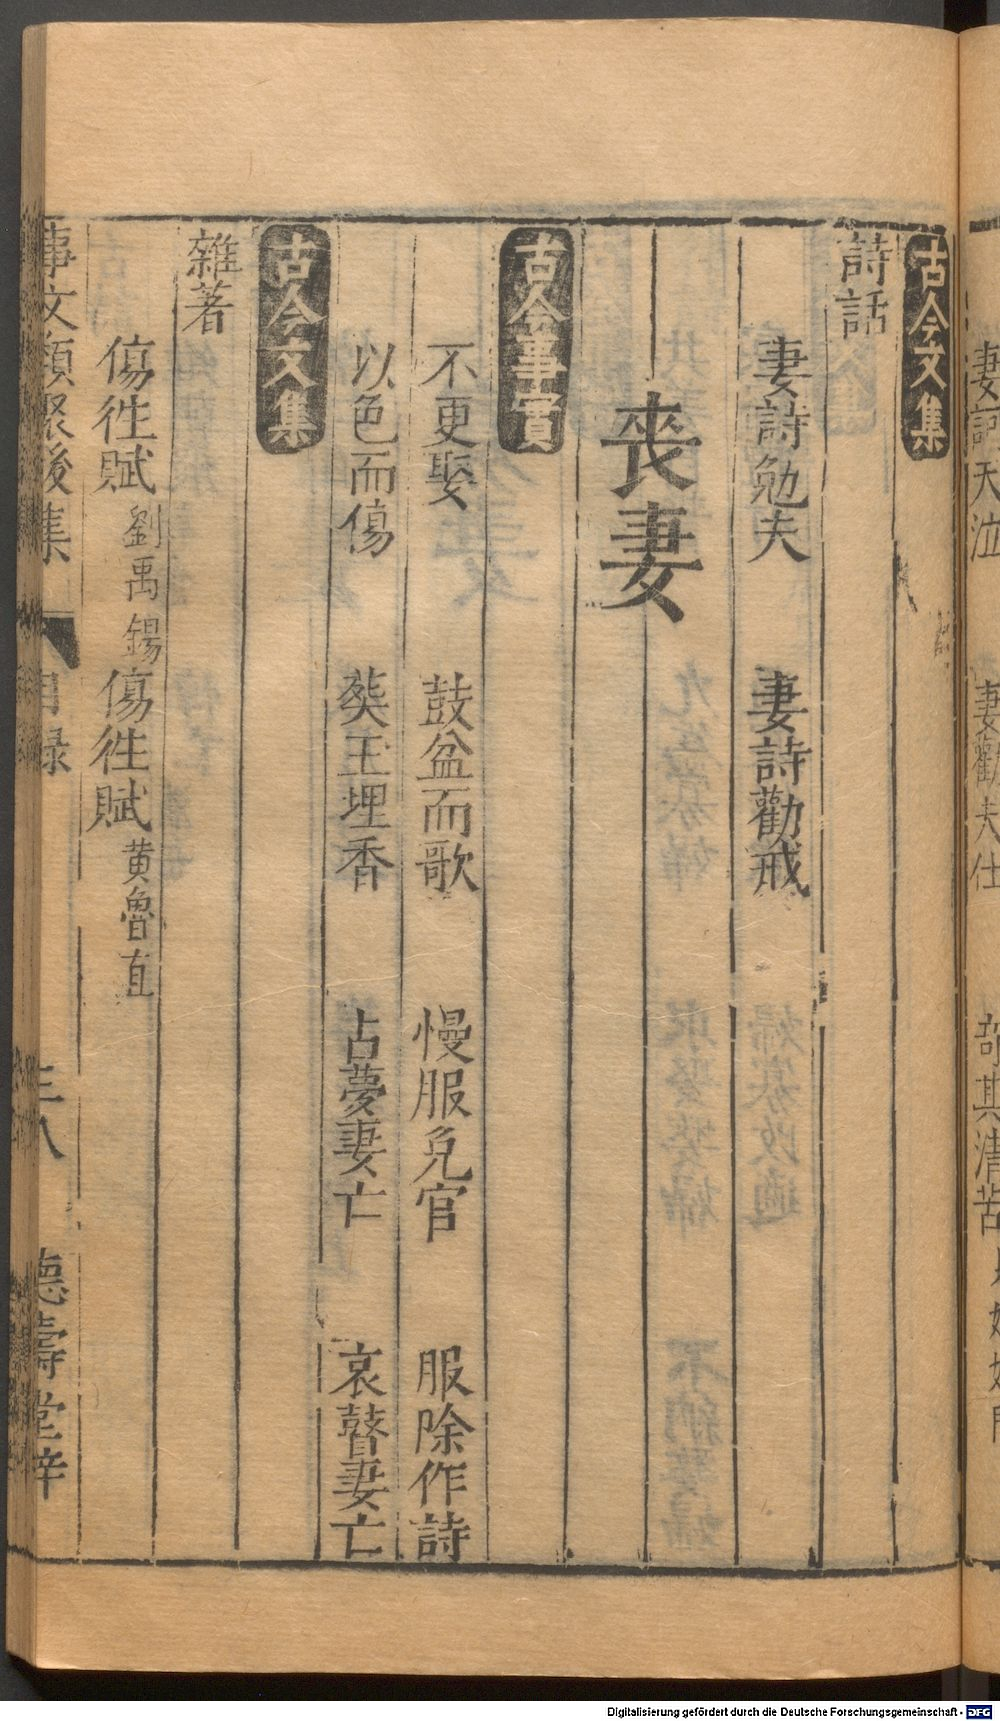 古今文集
詩話
妻詩勉夫 妻詩勸戒
喪妻
古今事實
不更娶 鼓盆而歌 慢服免官 服除作詩
以色而傷 𦵏玉埋香 占夢妻亡 哀瞽妻亡
古今文集
雜著
傷徃賦 劉禹錫 傷徃賦 黄魯直
事文類聚後集 目録 三八 德壽堂梓
Digitalisierung gefördert durch die Deutsche Forschungsgemeinschaft - DFG